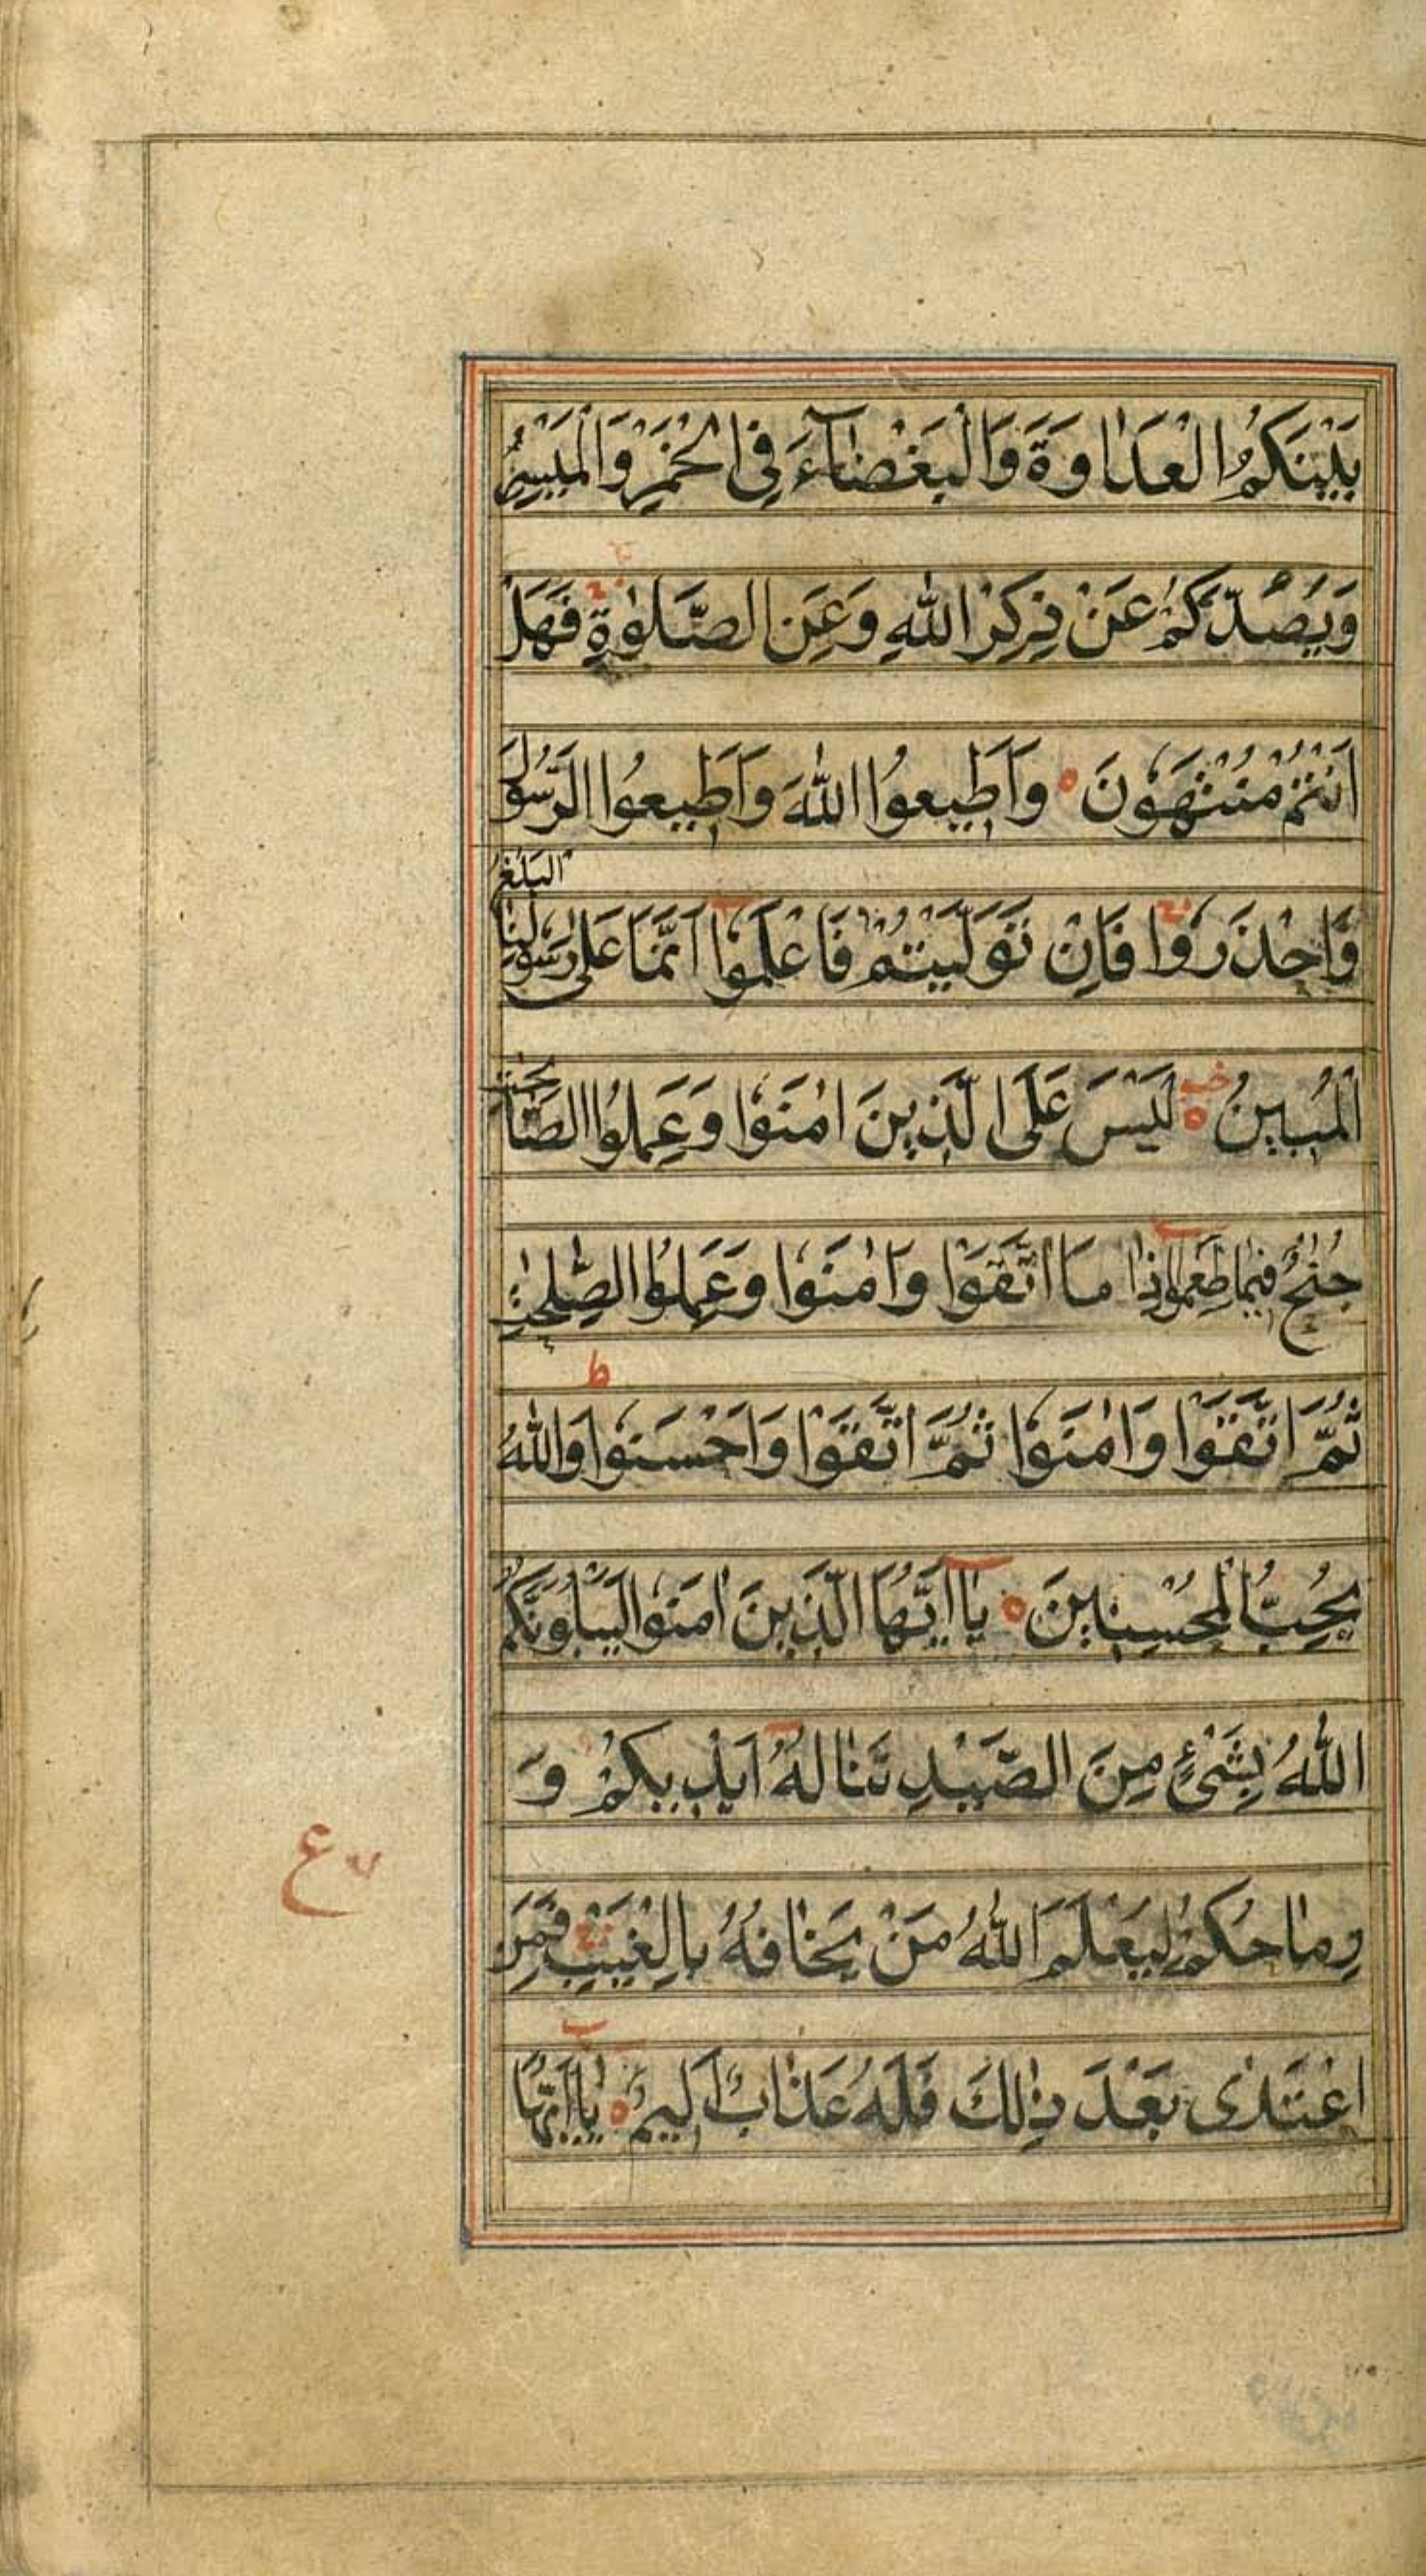 بَيْنَكُمُ الْعَدَاوَةَ وَالْبَغْضَآءَ فِي الْخَمْرِ وَالْمَيْسِرِ
وَيَصُدَّكُمْ عَنْ ذِكْرِ اللّٰهِ وَعَنِ الصَّلٰوةِ فَهَلْ
اَنْتُمْ مُنْتَهُونَ ه وَاَطِيعُوا اللّٰهَ وَاَطِيعُوا الرَّسُولَ
وَاحْذَرُوا فَاِنْ تَوَلَّيْتُمْ فَاعْلَمُوا اَنَّمَا عَلٰى رَسُولِنَا الْبَلٰغُ
الْمُبِينُ ه لَيْسَ عَلَى الَّذِينَ اٰمَنُوا وَعَمِلُوا الصّٰلِحٰتِ
جُنَاحٌ فِيمَا طَعِمُوا اِذَا مَا اتَّقَوْا وَاٰمَنُوا وَعَمِلُوا الصّٰلِحٰتِ
ط
ثُمَّ اتَّقَوْا وَاٰمَنُوا ثُمَّ اتَّقَوْا وَاَحْسَنُوا وَاللّٰهُ
يُحِبُّ الْمُحْسِنِينَ ه يَا اَيُّهَا الَّذِينَ اٰمَنُوا لَيَبْلُوَنَّكُمُ
اللّٰهُ بِشَيْءٍ مِنَ الصَّيْدِ تَنَالُهُ اَيْدِيكُمْ وَ
رِمَاحُكُمْ لِيَعْلَمَ اللّٰهُ مَنْ يَخَافُهُ بِالْغَيْبِ فَمَنِ
اعْتَدٰى بَعْدَ ذٰلِكَ فَلَهُ عَذَابٌ اَلِيمٌ ه يَا اَيُّهَا
ع